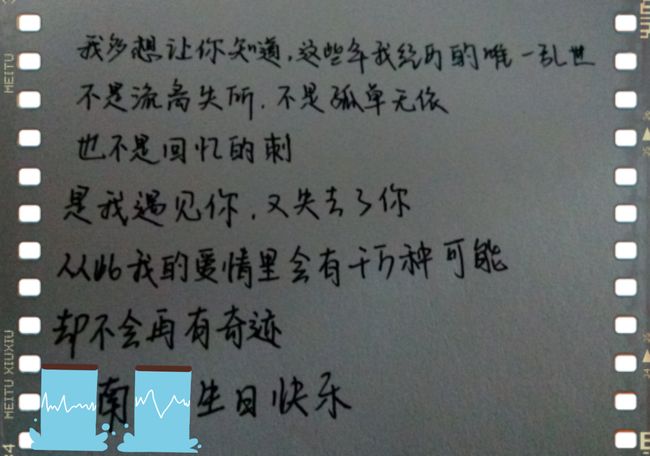 我多想让你知道，这些年我经历的唯一乱世
不是流离失所，不是孤单无依
也不是回忆的刺
是我遇见你，又失去了你
从此我的爱情里会有千万种可能
却不会再有奇迹
南 生日快乐
MEITU
MEITU XIUXIU